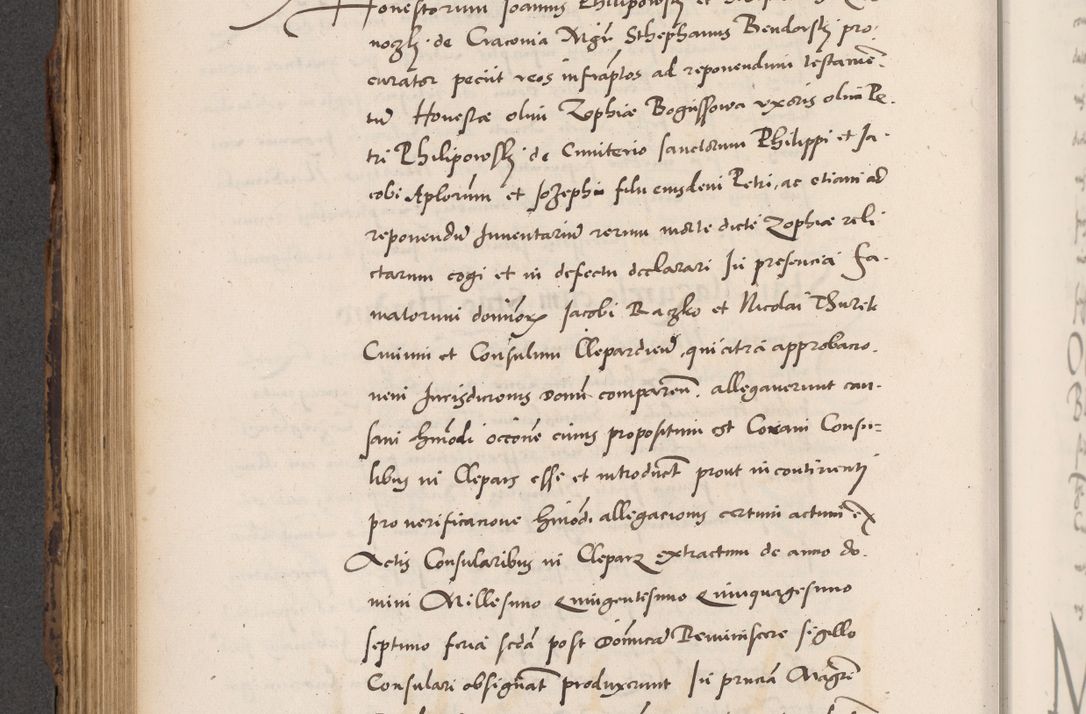 Honestorum Joannis Philipowsky et
noczky de Cracovia Mgr Sthephanus Bendorsky pro-
curator peciit reos infrascriptos ad reponendum testamen-
tum Honestae olim Zophiae Bogussowa uxoris olim Pe-
tri Philipowsky de Cimiterio sanctorum Philippi et Ja-
cobi Aplorum et Jozephi filii eiusdem Petri, ac etiam ad
reponendum Inventarium rerum morte dictae Zophiae reli-
ctarum cogi et in defectu declarari In presencia Fa-
matorum dominorum Jacobi Raczko et Nicolai Thurek
Civium et Consulum Clepardien, qui citra approbacio-
nem Jurisdicionis Domini comparen. allegaverunt cau-
sam hmodi occone cuius propositum est Coram Consu-
libus in Clepars esse et introduct prout in continenti
pro verificacione hmodi allegacionis certum actum ex
Actis Consularibus in Clepars extractum de anno do-
mini Millesimo Quingentesimo Quinquagesimo
septimo feria scda post Dominicam Reminiscere sigillo
Consulari obsignat produxerunt In pncia Magri